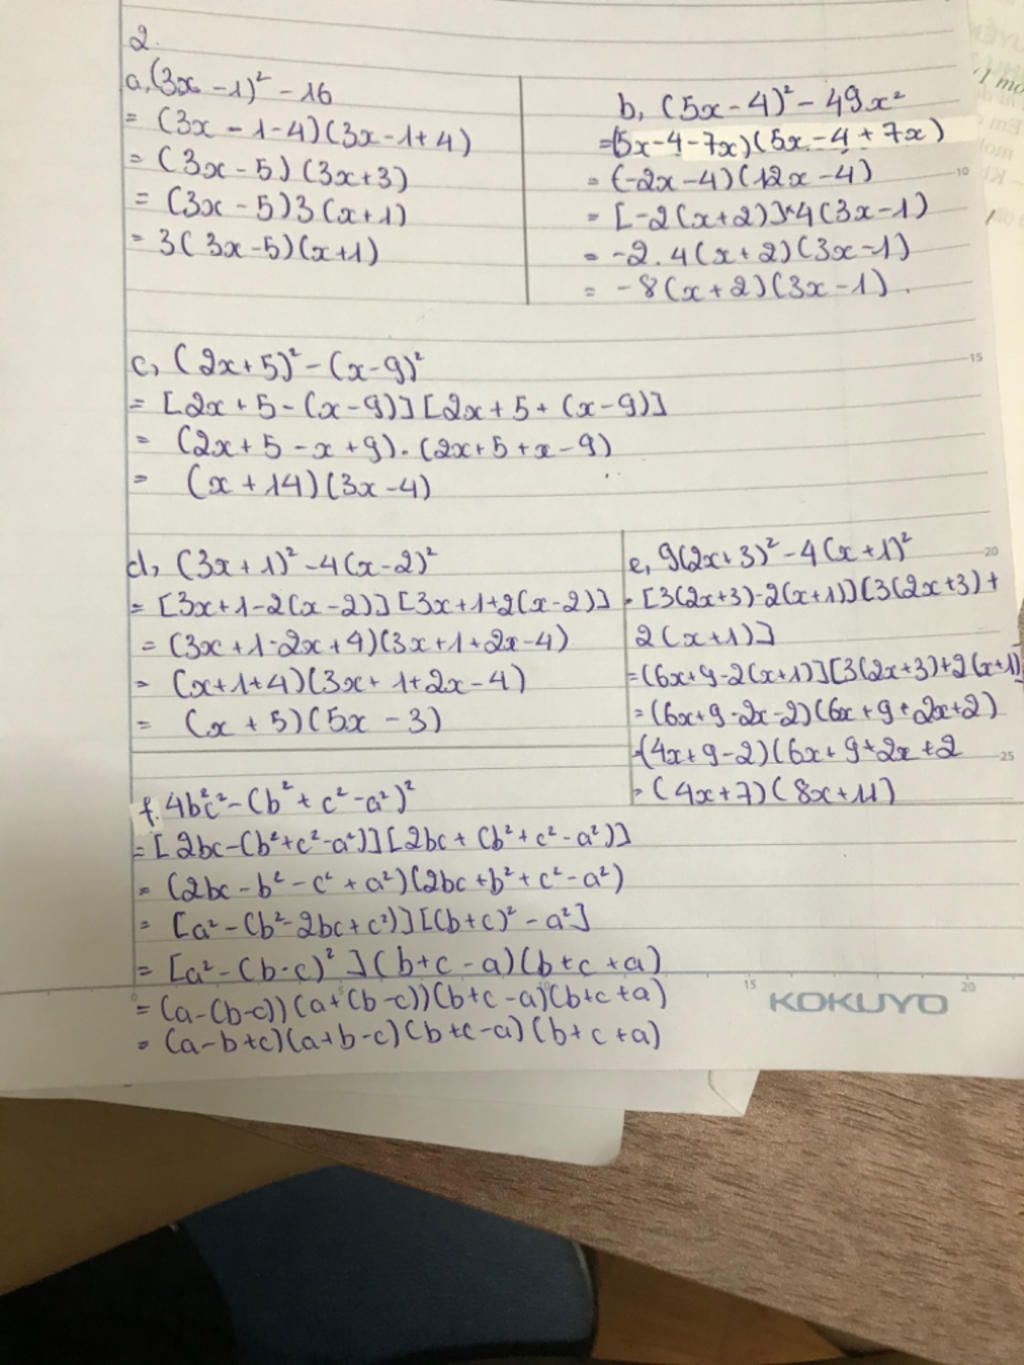 2.
a, (3x - 1)² - 16
= (3x - 1 - 4)(3x - 1 + 4)
= (3x - 5)(3x+3)
= (3x - 5)3(x+1)
= 3(3x-5)(x+1)
b, (5x - 4)² - 49x²
=(5x-4-7x)(5x-4+7x)
= (-2x-4)(12x-4)
= [-2(x+2)]·4(3x-1)
= -2.4(x+2)(3x-1)
= -8(x+2)(3x-1).
c, (2x+5)² - (x-9)²
= [2x+5-(x-9)][2x+5+(x-9)]
= (2x+5-x+9).(2x+5+x-9)
= (x+14)(3x-4)
d, (3x+1)² - 4(x-2)²
= [3x+1-2(x-2)][3x+1+2(x-2)]
= (3x+1-2x+4)(3x+1+2x-4)
= (x+1+4)(3x+1+2x-4)
= (x+5)(5x-3)
e, 9(2x+3)² - 4(x+1)²
= [3(2x+3)-2(x+1)][3(2x+3)+
2(x+1)]
=(6x+9-2(x+1)][3(2x+3)+2(x+1)]
=(6x+9-2x-2)(6x+9+2x+2)
=(4x+9-2)(6x+9+2x+2
=(4x+7)(8x+11)
f. 4b²c² - (b² + c² - a²)²
= [2bc-(b²+c²-a²)][2bc+(b²+c²-a²)]
= (2bc-b²-c²+a²)(2bc+b²+c²-a²)
= [a²-(b²-2bc+c²)][(b+c)²-a²]
= [a²-(b-c)²](b+c-a)(b+c+a)
= (a-(b-c))(a+(b-c))(b+c-a)(b+c+a)
= (a-b+c)(a+b-c)(b+c-a)(b+c+a)
10
15
20
25
15
KOKUYO
20